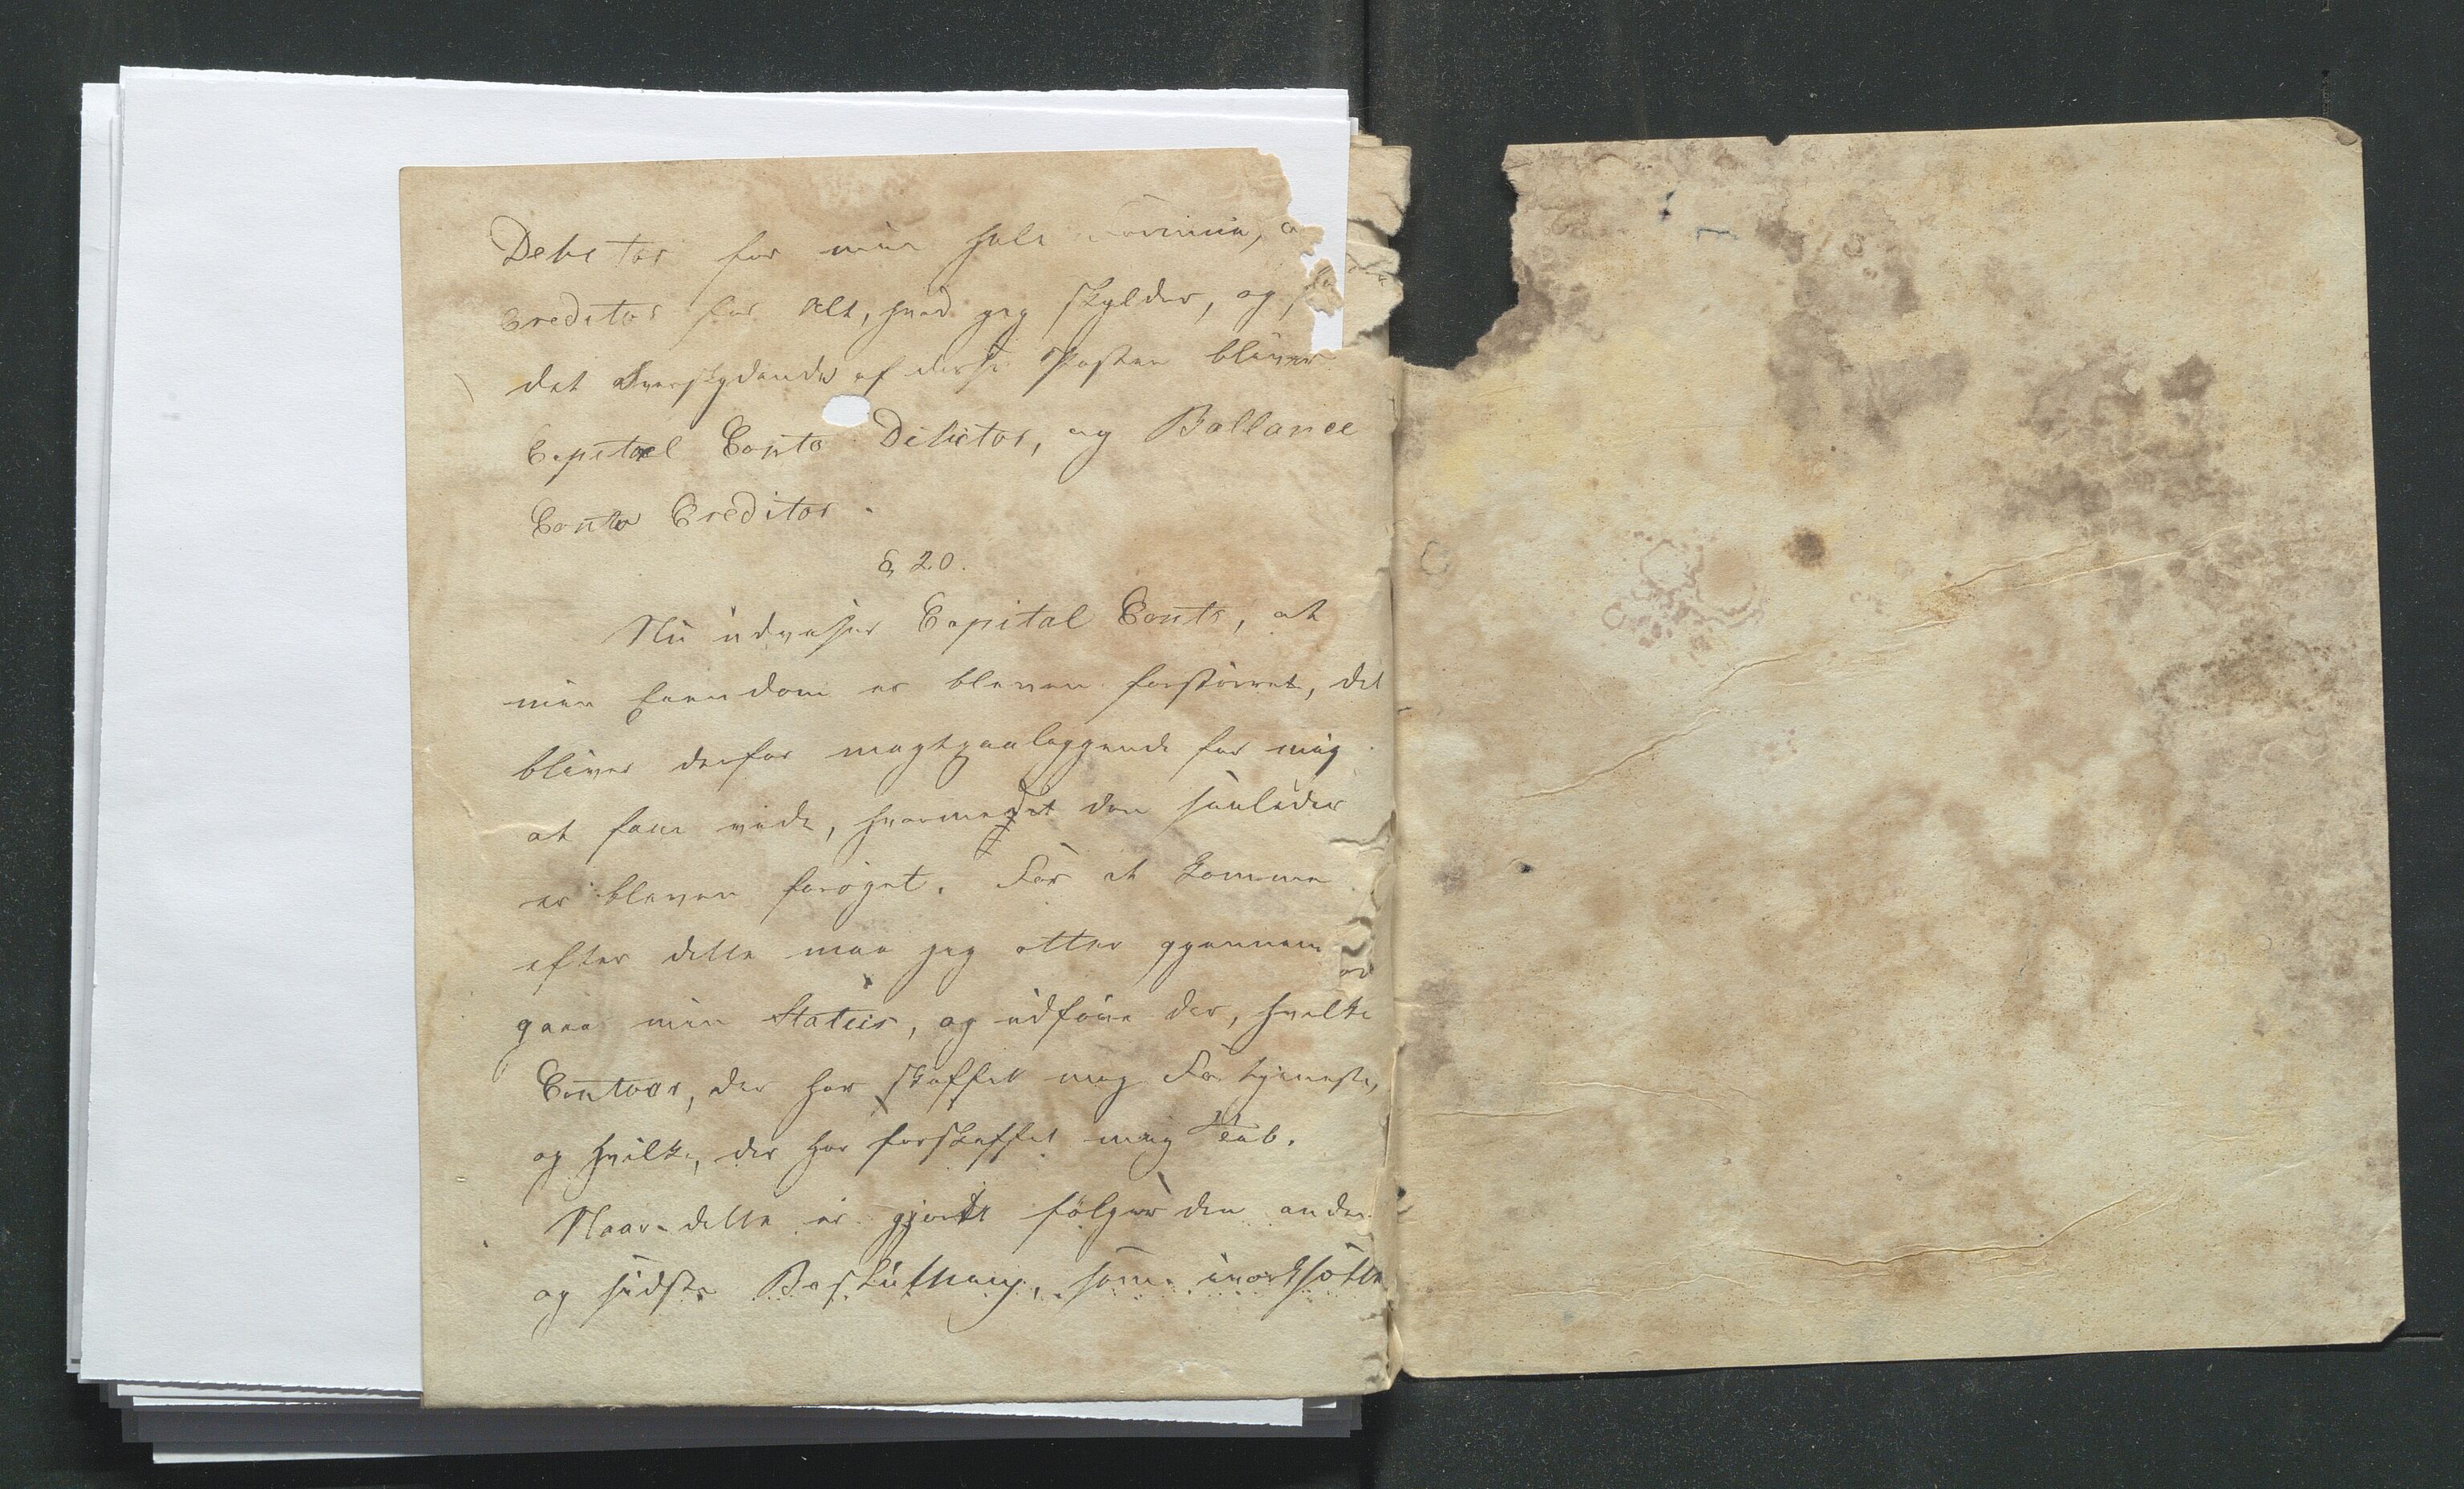 Debitor for min hele Formue, o
Creditor for Alt, hvad jeg skylder, og,
det Overskydende af disse Poster bliver
Capital Conto Debitor, og Ballance
Conto Creditor.
§ 20.
Nu udviser Capital Conto, at
min Eiendom er bleven forstørret, det
bliver derfor magtpaaliggende for mig
at faae vide, hvormedet den saaledes
er bleven forøget. For at komme
efter dette maa jeg atter gjennem
gaae min Status, og udføre der, hvilke
Contoer, der har skaffet mig Fortjeneste,
og hvilke, der har forskaffet mig Tab.
Naar dette er gjordt følger den anden
og sidste Beslutning, som iværksætte